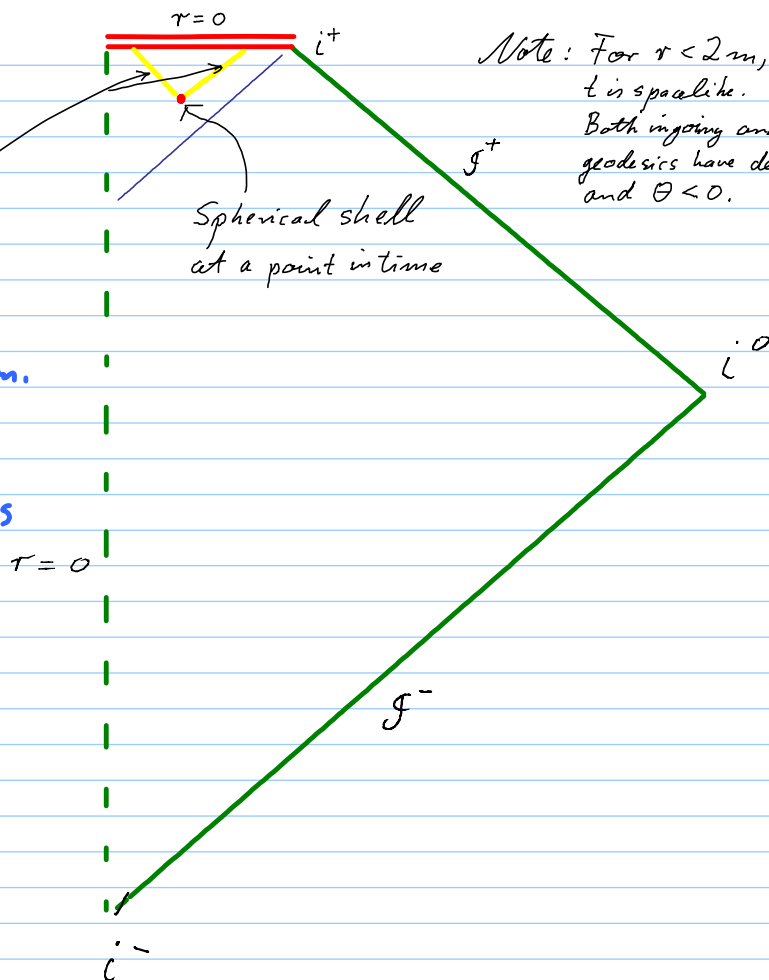 r = 0
i⁺
Note : For r < 2m,
t is spacelike.
Both ingoing an
geodesics have de
and θ < 0.
𝓘⁺
Spherical shell
at a point in time
i⁰
m.
s
r = 0
𝓘⁻
i⁻